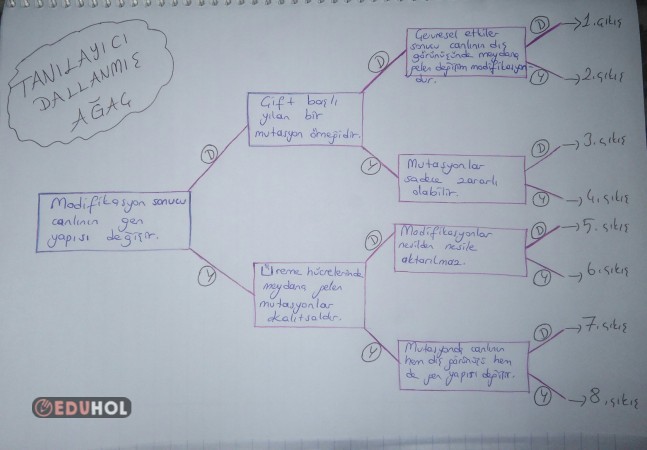 TANILAYICI
DALLANMIŞ
AĞAÇ
Modifikasyon sonucu
canlının gen
yapısı değişir.
D
Y
Çift başlı
yılan bir
mutasyon örneğidir.
D
Y
Üreme hücrelerinde
meydana gelen
mutasyonlar
kalıtsaldır.
D
Y
Çevresel etkiler
sonucu canlının dış
görünüşünde meydana
gelen değişim modifikasyon
dur.
D
Y
Mutasyonlar
sadece zararlı
olabilir.
D
Y
Modifikasyonlar
nesilden nesile
aktarılmaz.
D
Y
Mutasyonda canlının
hem dış görünüşü hem
de gen yapısı değişir.
D
Y
1. çıkış
2. çıkış
3. çıkış
4. çıkış
5. çıkış
6. çıkış
7. çıkış
8. çıkış
EDUHOL